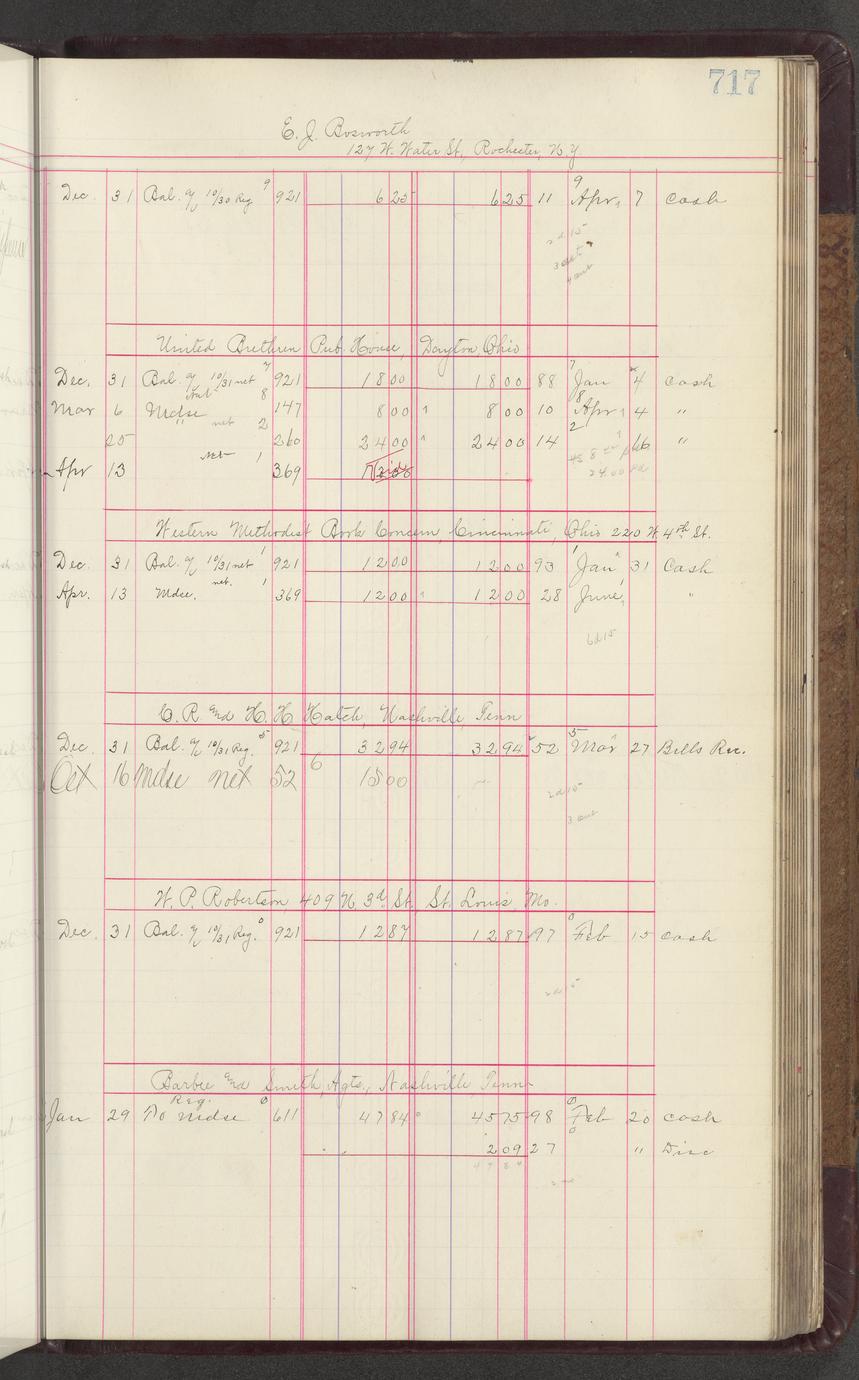 717
E. J. Bosworth
127 W. Water St., Rochester, N.Y
Dec. 31 Bal. a/c 10/30 Reg 9 921 6 25 6 25 11 9 Apr. 7 Cash
2d 15
United Brethren Pub. House, Dayton, Ohio
Dec. 31 Bal. a/c 10/31 net 7 921 18 00 18 00 88 7 Jan 4 Cash
Mar 6 Mdse net 8 147 8 00 8 00 10 8 Apr 4 "
25 " net 2 260 24 00 24 00 14 2 16 "
24.00 pd
Apr 13 net 1 369
Western Methodist Book Concern, Cincinnati, Ohio 220 W. 4th St.
Dec. 31 Bal. a/c 10/31 net 1 921 12 00 12 00 93 1 Jan 31 Cash
Apr. 13 Mdse. net. 1 369 12 00 12 00 28 June "
6d15
C. R. and H. H. Hatch, Nashville, Tenn
Dec. 31 Bal. a/c 10/31 Reg. 5 921 32 94 32 94 52 5 Mar 27 Bills Rec.
Oct 16 Mdse net 52 6 15 00
2d 15
3
W. P. Robertson, 409 N. 3d St., St. Louis, Mo.
Dec. 31 Bal. a/c 10/31 Reg. 0 921 12 87 12 87 97 0 Feb 15 Cash
2d 15
Barbee and Smith, Agts., Nashville Tenn
Jan 29 To Mdse Reg. 0 611 47 84 45 75 98 0 Feb 20 Cash
2 09 27 0 " Disc
47 84